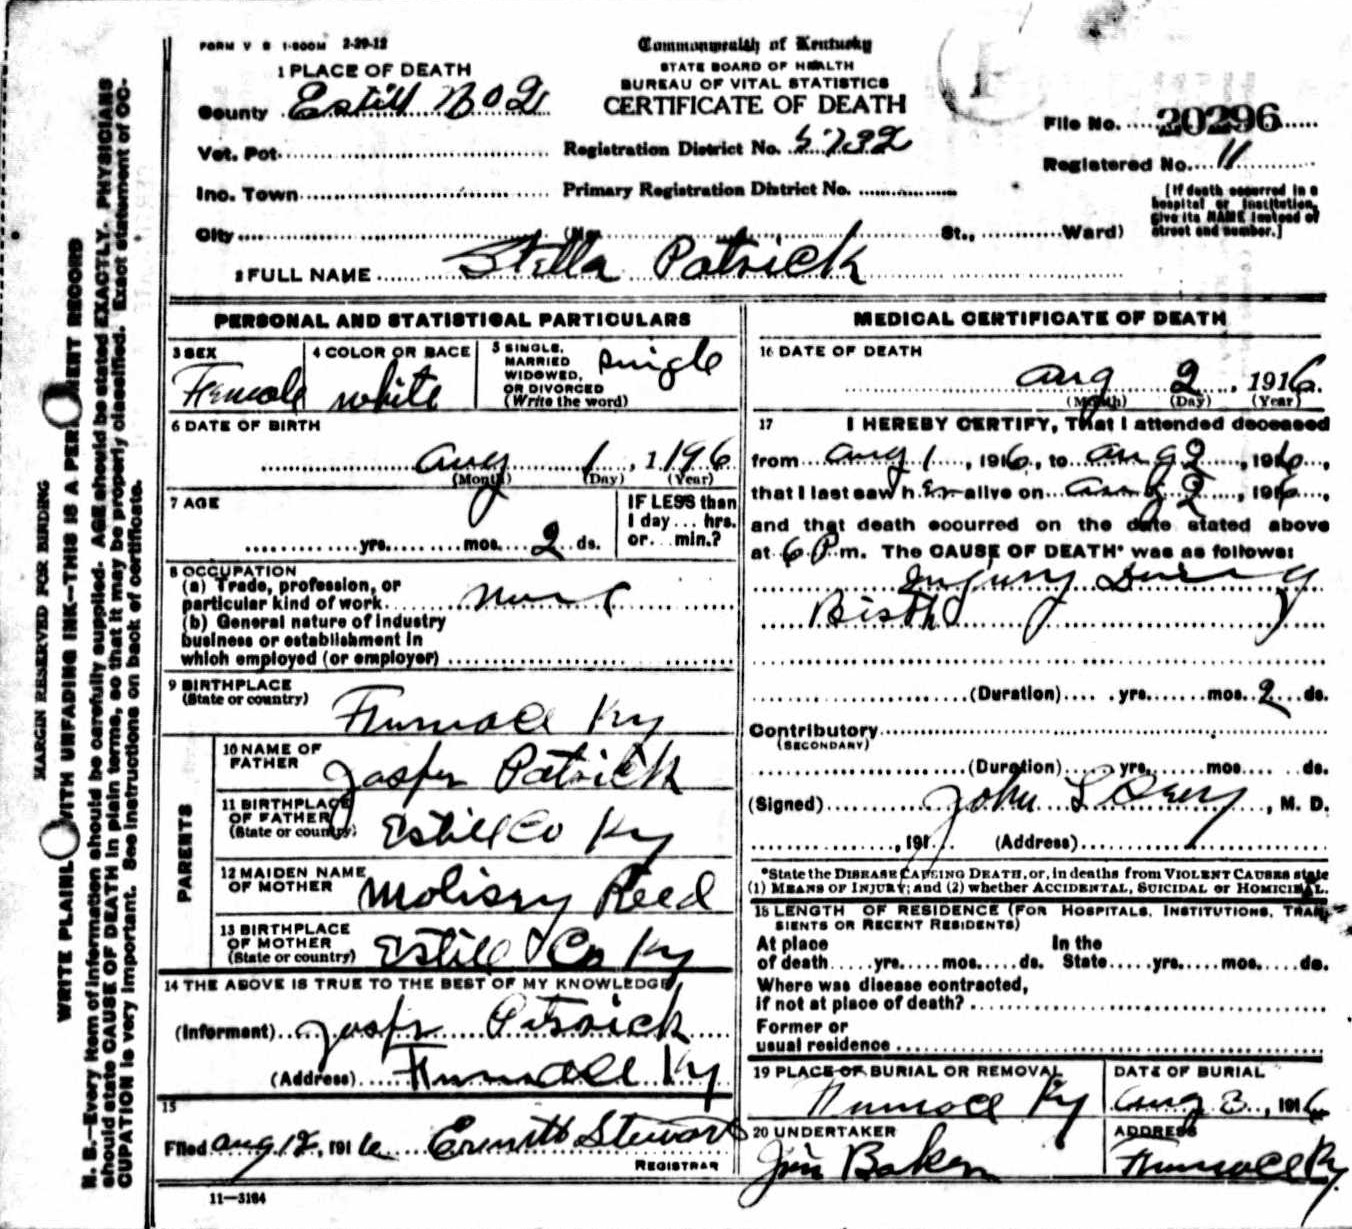 FORM V S 1-500M 2-29-12
Commonwealth of Kentucky
STATE BOARD OF HEALTH
BUREAU OF VITAL STATISTICS
CERTIFICATE OF DEATH
1 PLACE OF DEATH
County Estill No 2
Vot. Pct.
Inc. Town
City (No. St., Ward)
Registration District No. 5732
Primary Registration District No.
File No. 20296
Registered No. 11
[If death occurred in a
hospital or institution,
give its NAME instead of
street and number.]
2 FULL NAME Stella Patrick
PERSONAL AND STATISTICAL PARTICULARS
3 SEX
Female
4 COLOR OR RACE
white
5 SINGLE,
MARRIED
WIDOWED,
OR DIVORCED
(Write the word)
single
6 DATE OF BIRTH
Aug 1, 1916
(Month) (Day) (Year)
7 AGE
yrs. mos. 2 ds.
IF LESS than
1 day ... hrs.
or ... min.?
8 OCCUPATION
(a) Trade, profession, or
particular kind of work
(b) General nature of industry
business or establishment in
which employed (or employer)
9 BIRTHPLACE
(State or country)
Furnace Ky
PARENTS
10 NAME OF
FATHER
Jasper Patrick
11 BIRTHPLACE
OF FATHER
(State or country)
Estill Co Ky
12 MAIDEN NAME
OF MOTHER
Reed
13 BIRTHPLACE
OF MOTHER
(State or country)
Estill Co Ky
14 THE ABOVE IS TRUE TO THE BEST OF MY KNOWLEDGE
(Informant) Jaspr Patrick
(Address) Furnace Ky
15
Filed Aug 12, 1916 Stewart
REGISTRAR
11-3184
MEDICAL CERTIFICATE OF DEATH
16 DATE OF DEATH
Aug 2, 1916.
(Month) (Day) (Year)
17 I HEREBY CERTIFY, That I attended deceased
from Aug 1, 1916, to Aug 2, 1916,
that I last saw h er alive on Aug 2, 1916,
and that death occurred on the date stated above
at 6 P.m. The CAUSE OF DEATH* was as follows:
Injury During
Birth
(Duration) yrs. mos. 2 ds.
Contributory
(SECONDARY)
(Duration) yrs. mos. ds.
(Signed) John, M. D.
, 191 (Address)
*State the DISEASE CAUSING DEATH, or, in deaths from VIOLENT CAUSES state
(1) MEANS OF INJURY; and (2) whether ACCIDENTAL, SUICIDAL or HOMICIDAL.
18 LENGTH OF RESIDENCE (FOR HOSPITALS, INSTITUTIONS, TRAN-
SIENTS OR RECENT RESIDENTS)
At place
of death yrs. mos. ds.
In the
State yrs. mos. ds.
Where was disease contracted,
if not at place of death?
Former or
usual residence
19 PLACE OF BURIAL OR REMOVAL
Furnace Ky
DATE OF BURIAL
Aug 3, 1916
20 UNDERTAKER
Jim Baker
ADDRESS
Furnace Ky
MARGIN RESERVED FOR BINDING
WRITE PLAINLY WITH UNFADING INK—THIS IS A PERMANENT RECORD
N. B.—Every item of information should be carefully supplied. AGE should be stated EXACTLY. PHYSICIANS
should state CAUSE OF DEATH in plain terms, so that it may be properly classified. Exact statement of OC-
CUPATION is very important. See instructions on back of certificate.